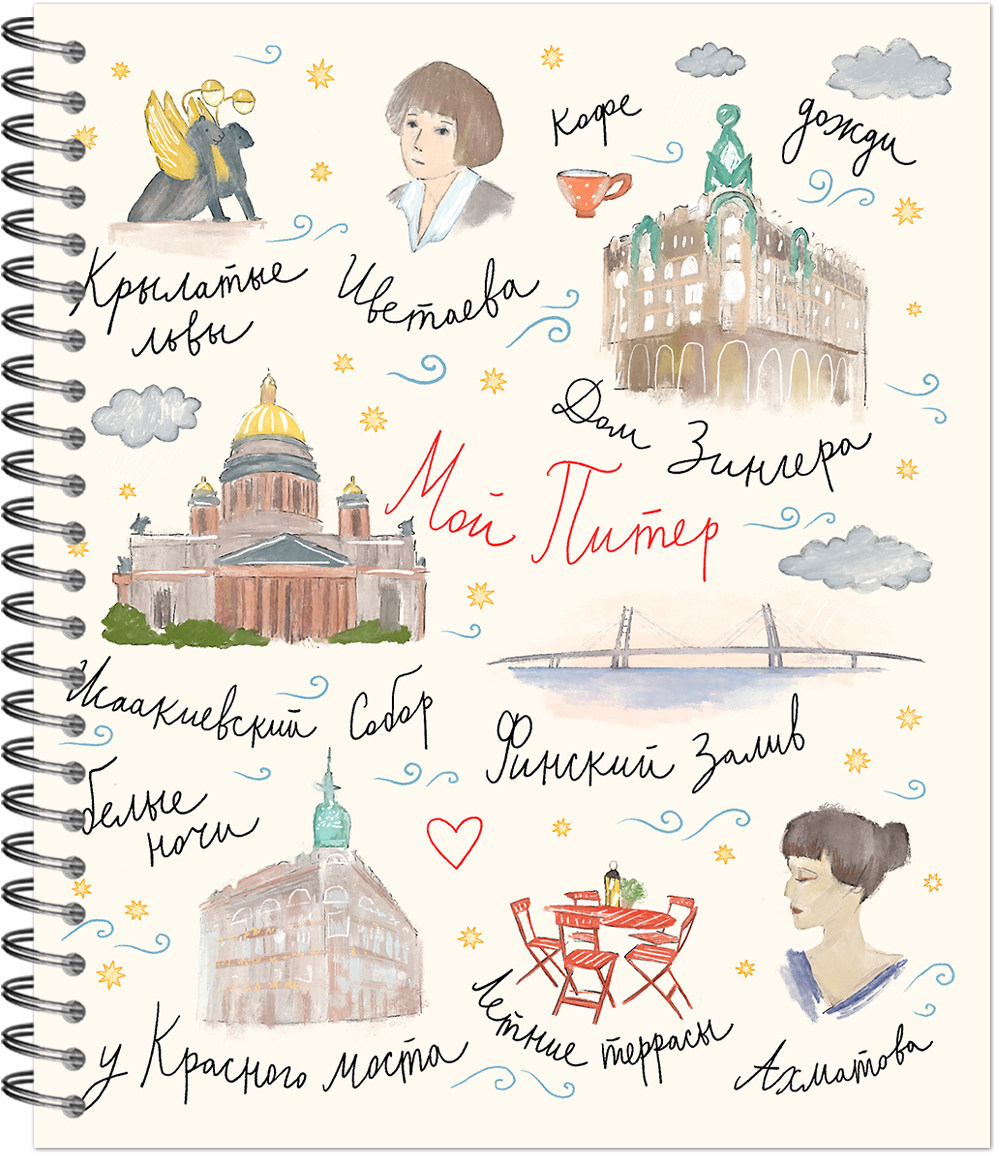 Кофе
дожди
Крылатые
львы
Цветаева
Дом Зингера
Мой Питер
Исаакиевский Собор
Финский залив
белые
ночи
у Красного моста
Летние террасы
Ахматова